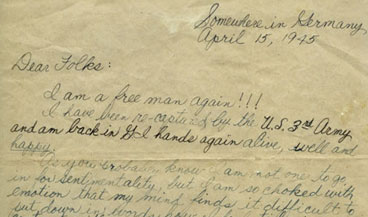 Somewhere in Germany
April 15, 1945
Dear Folks:
I am a free man again!!!
I have been re-captured by the U.S. 3rd Army
and am back in G-I hands again alive, well and
happy.
As you probably know I am not one to go
in for sentimentality, but I am so choked with
emotion that my mind finds it difficult to
put down in words how